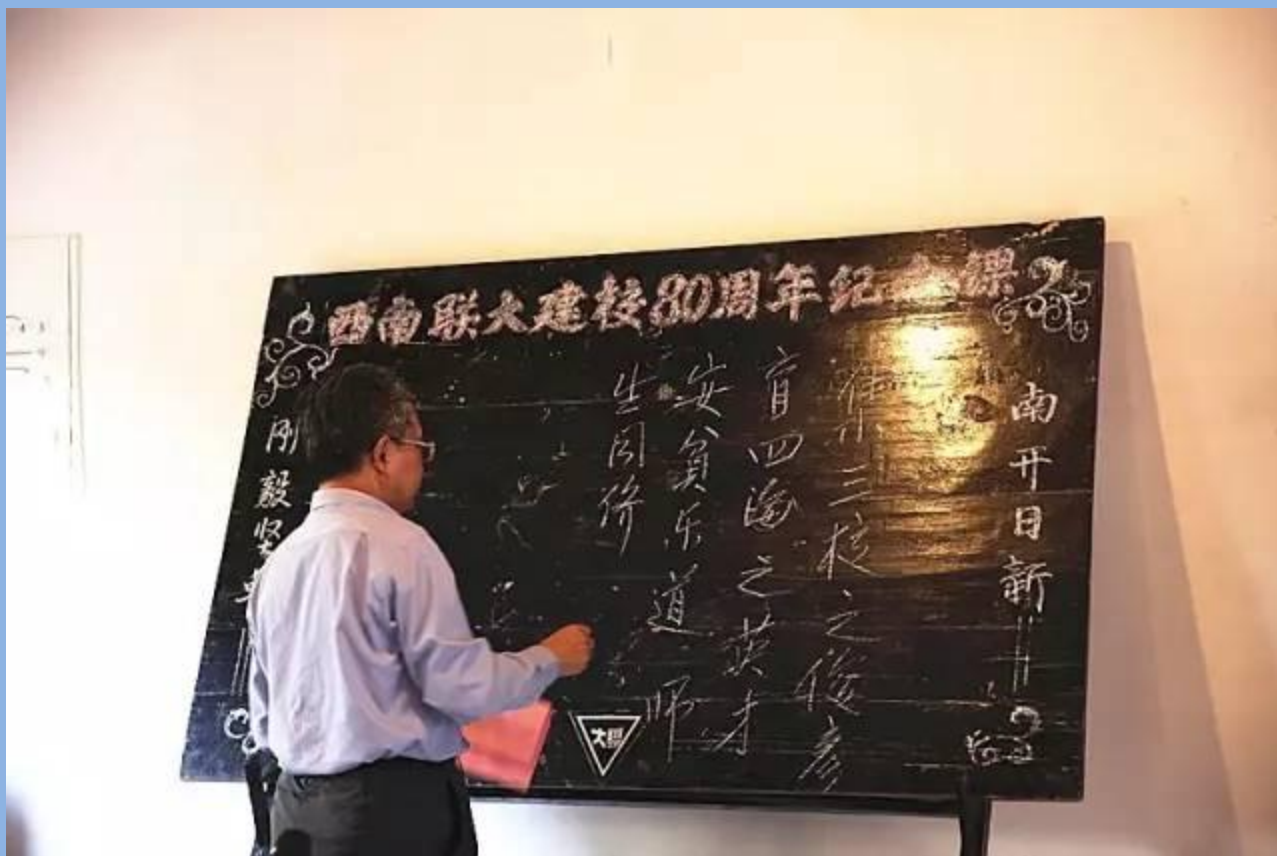 西南联大建校80周年纪念课
南开日新
三校之俊彦
育四海之英才
安贫乐道 师
生同侪
刚毅坚
大联